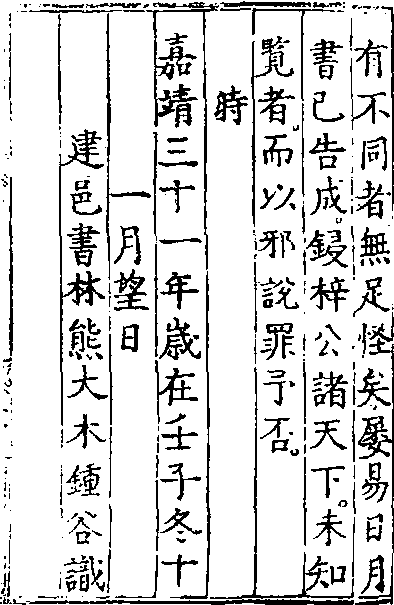 有不同者無足怪矣屡易日月
書已告成。鋟梓公諸天下。未知
覧者。而以邪說罪予否。
時
嘉靖三十一年歲在壬子冬十
一月望日
建邑書林熊大木鍾谷識